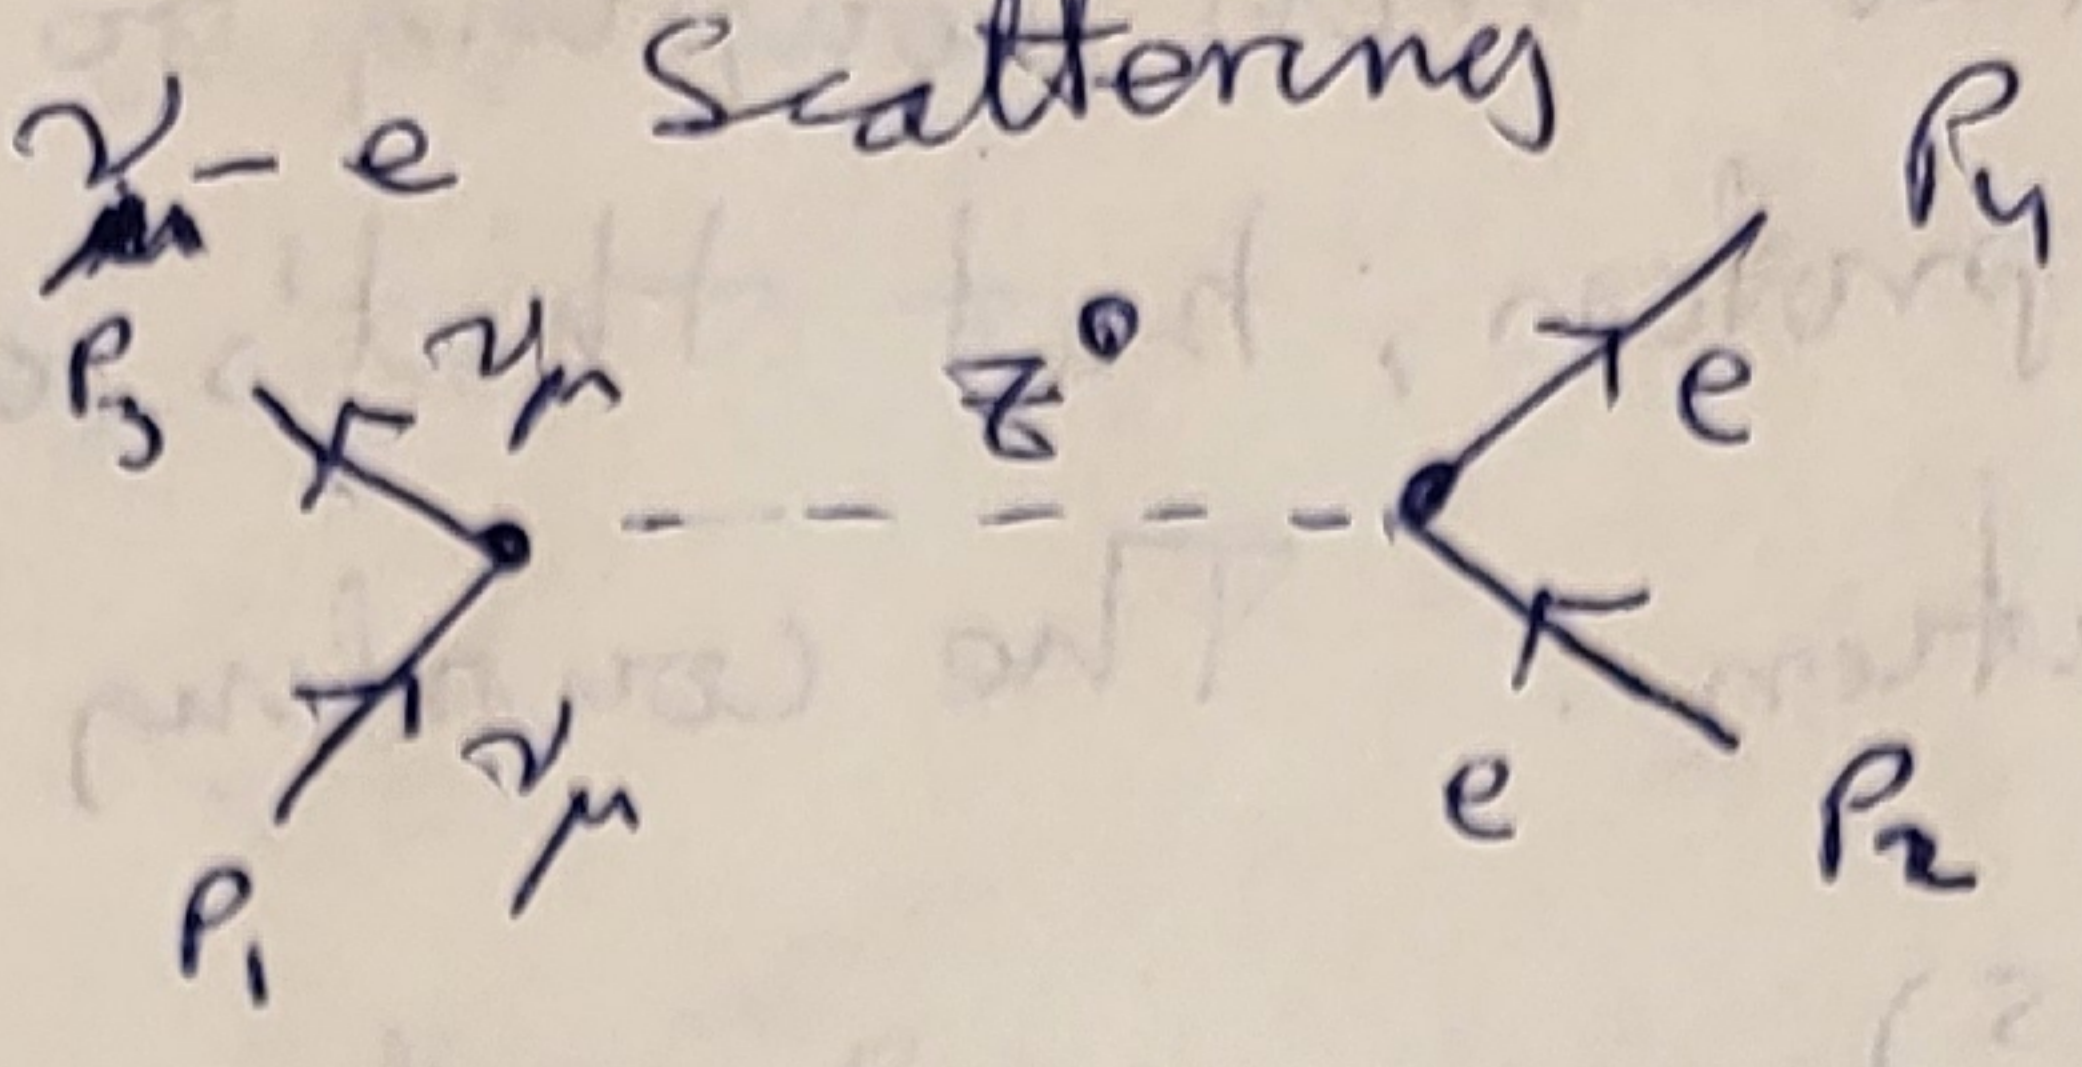 ν_μ - e Scattering
P₄
P₃ ν_μ Z⁰ e
P₁ ν_μ e P₂